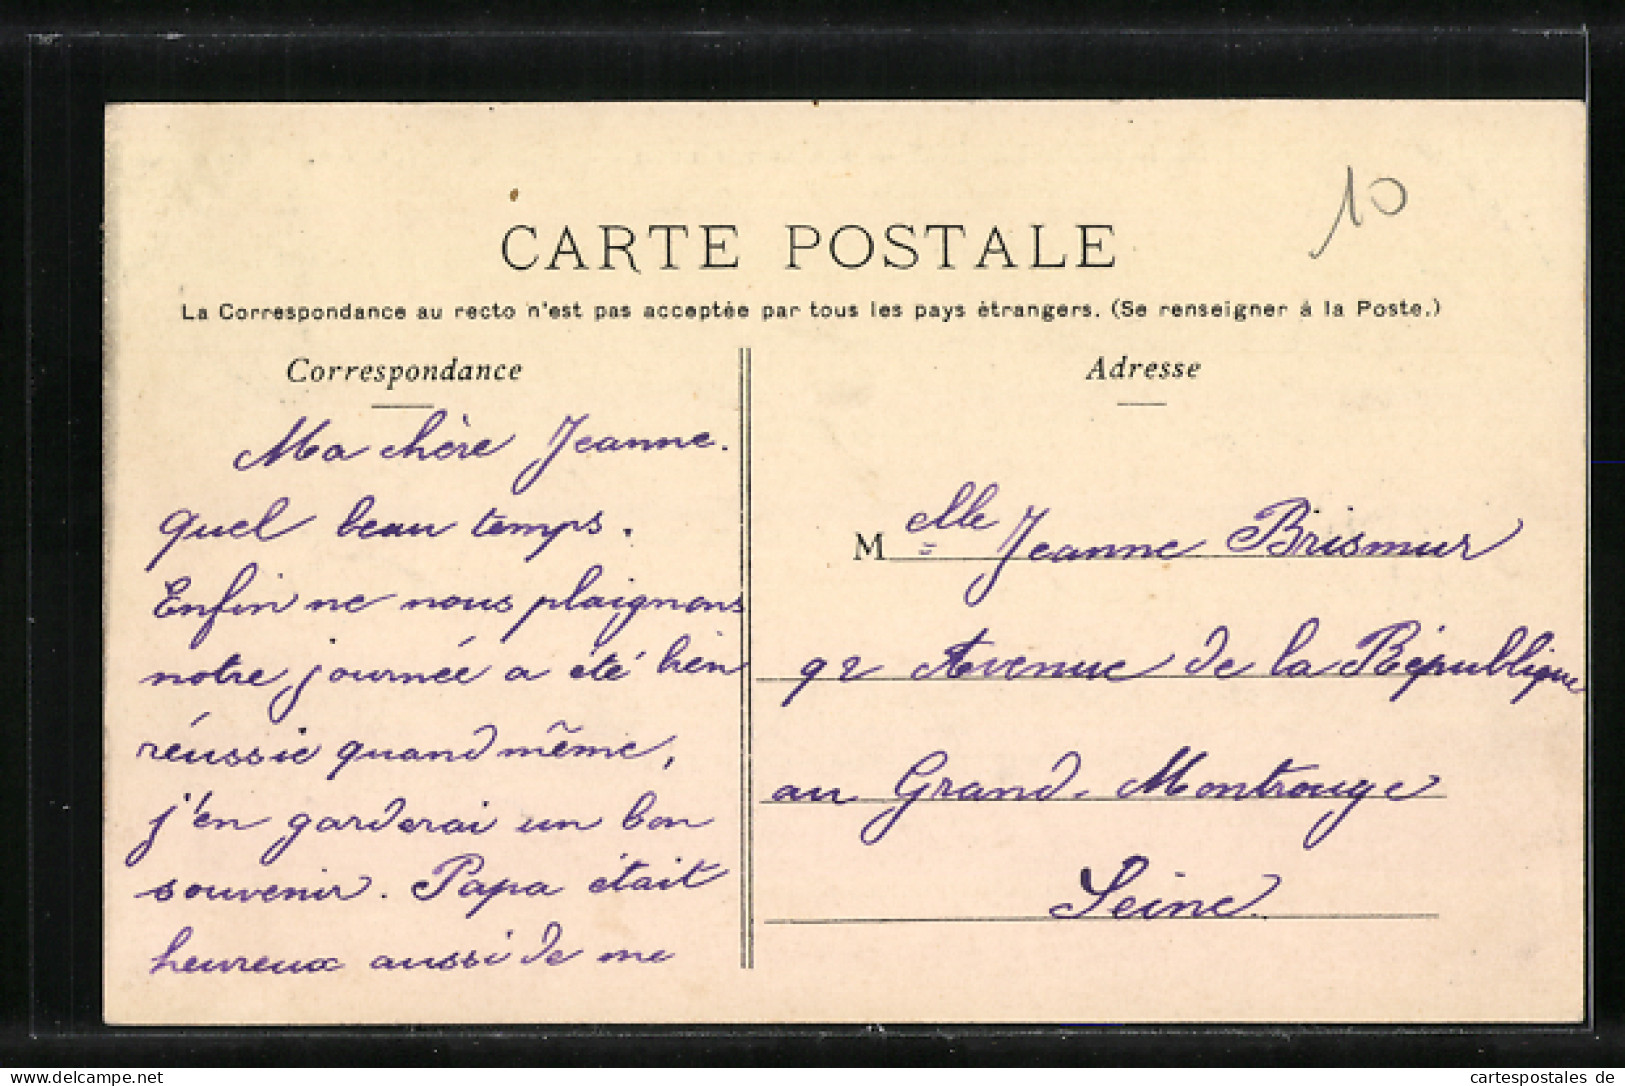 10
CARTE POSTALE
La Correspondance au recto n'est pas acceptée par tous les pays étrangers. (Se renseigner à la Poste.)
Correspondance
Ma chère Jeanne.
quel beau temps.
Enfin ne nous plaignons
notre journée a été bien
réussie quand même,
j'en garderai un bon
souvenir. Papa était
heureux aussi de me
Adresse
Melle Jeanne Brismur
92 Avenue de la République
au Grand-Montrouge
Seine.
Tous droits réservés pour tous pays
cartespostales de